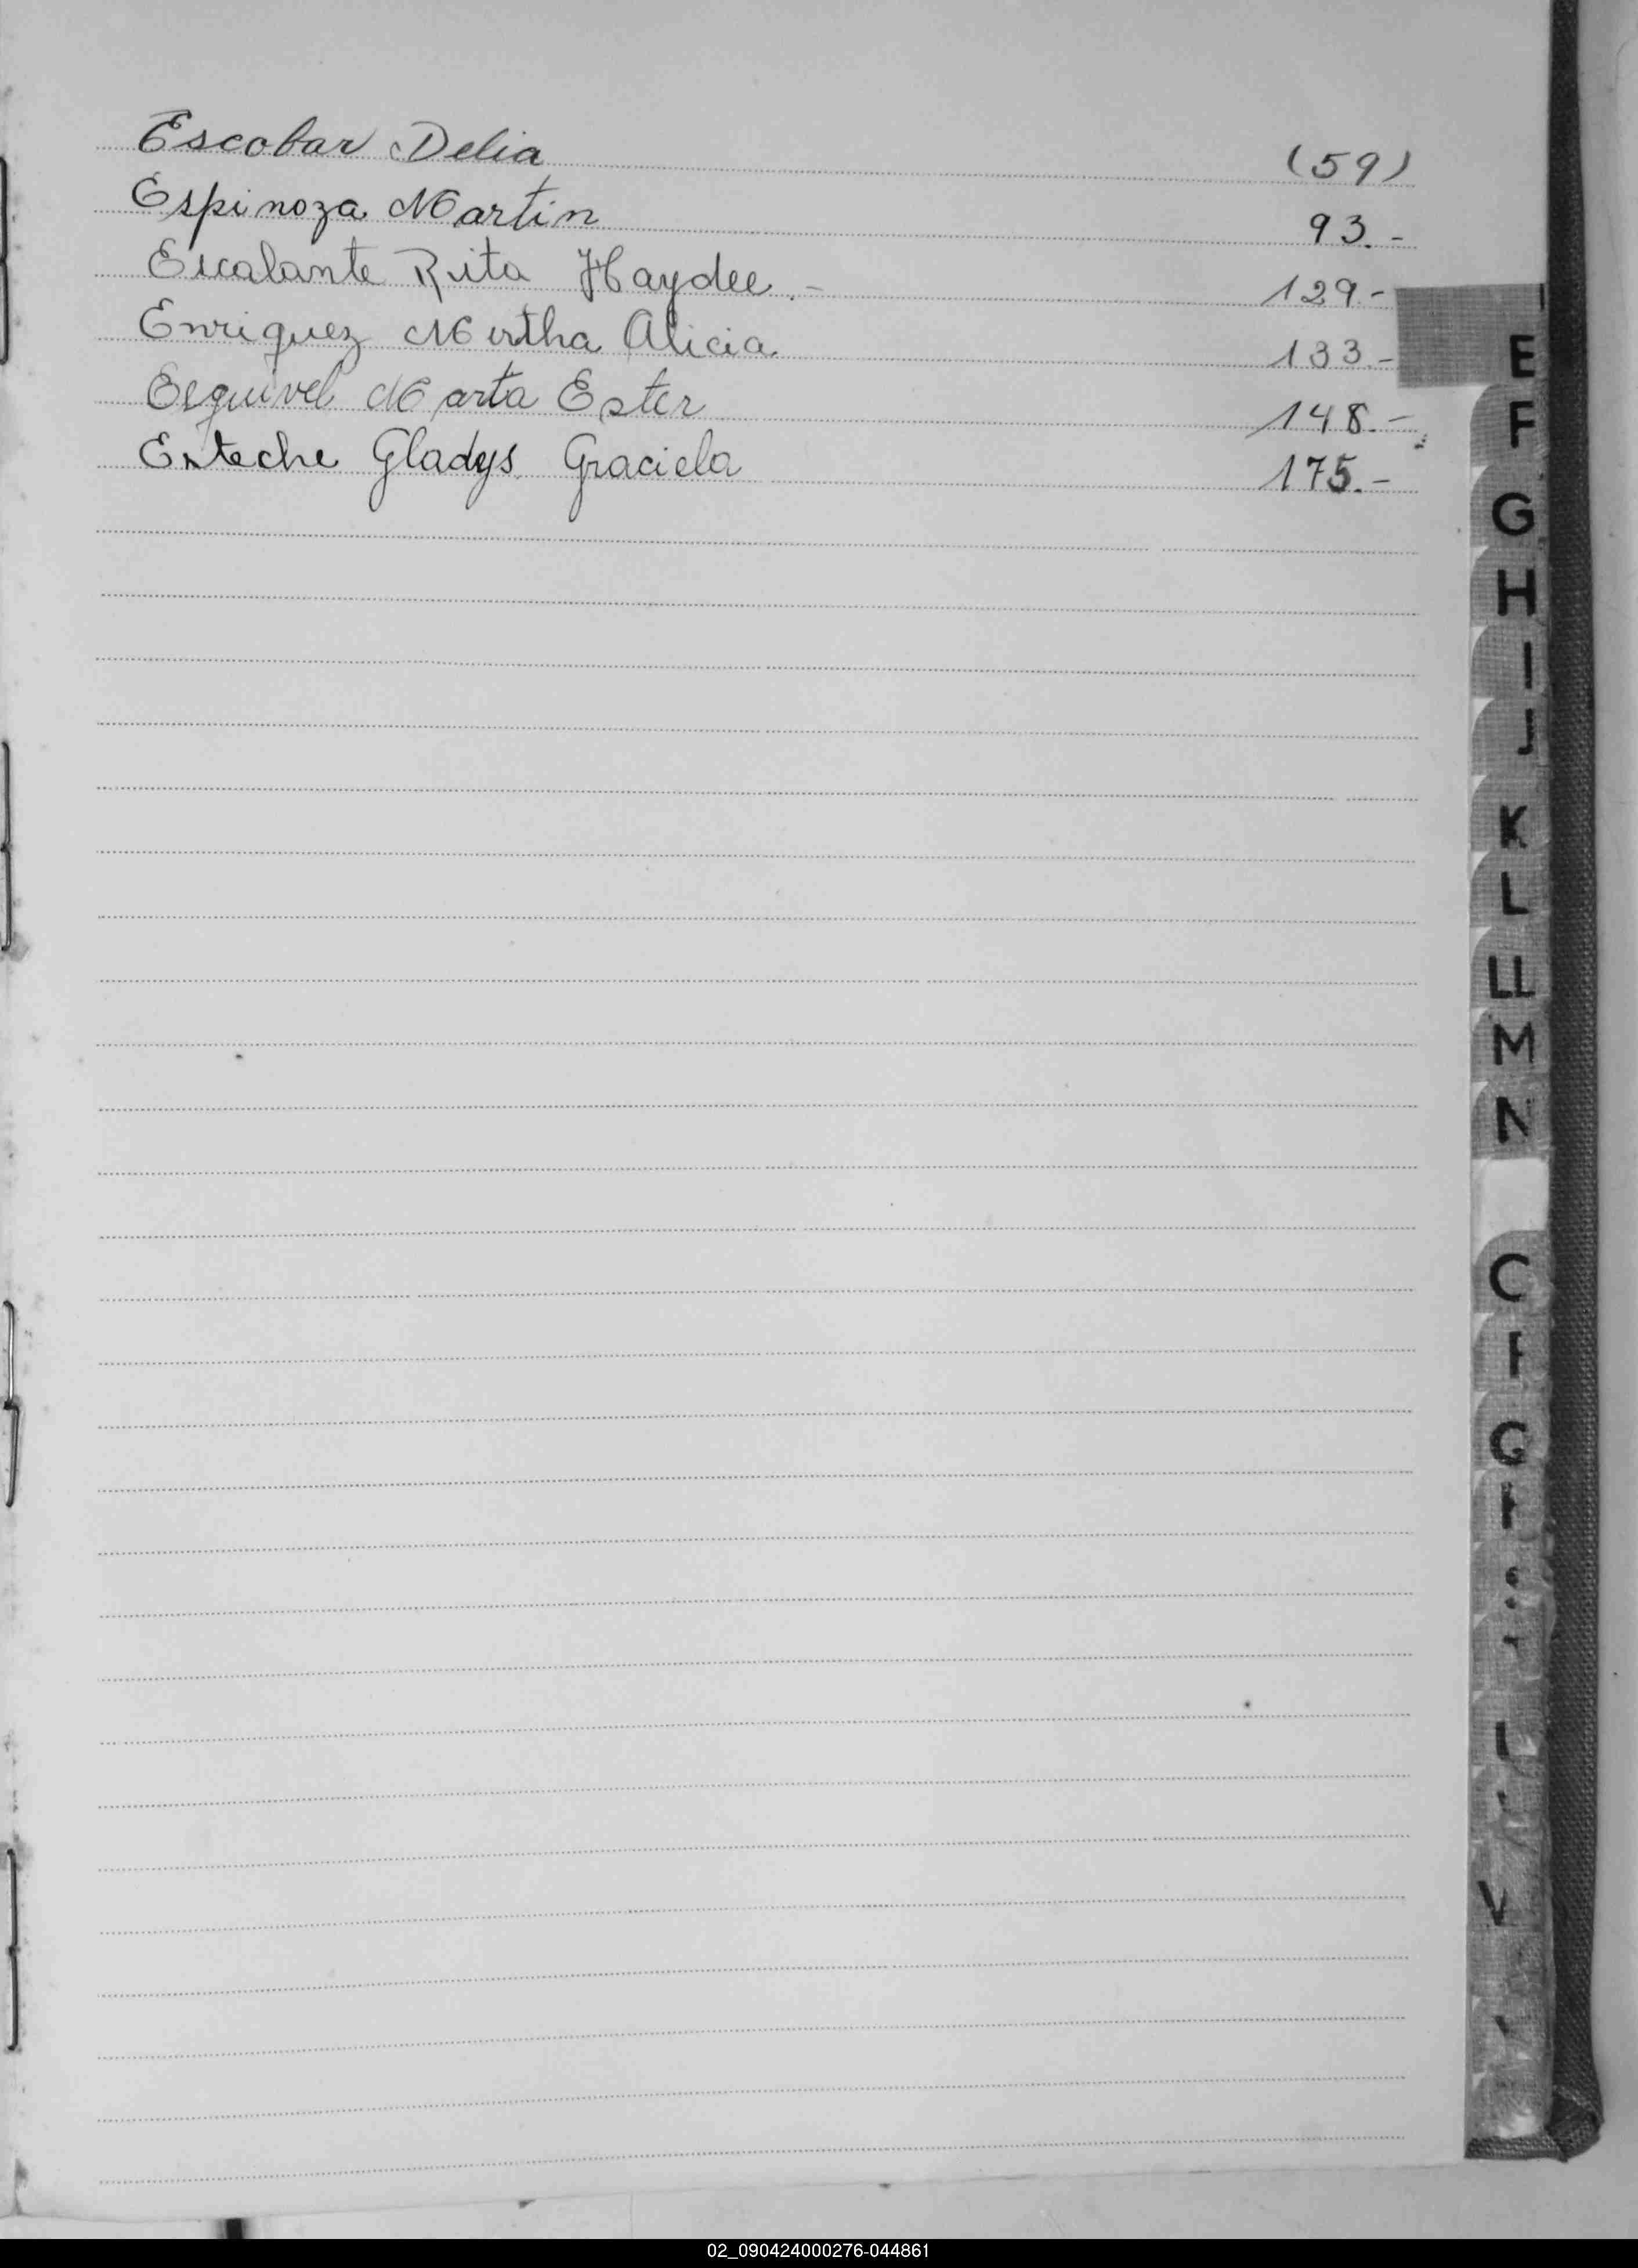 Escobar Delia (59)
Espinoza Martín 93.-
Escalante Rita Haydee.- 129.-
Enriquez Mirtha Alicia 133.-
Esquivel Marta Ester 148.-
Esteche Gladys Graciela 175.-
E
F
G
H
I
J
K
L
LL
M
N
C
G
V
02_090424000276-044861